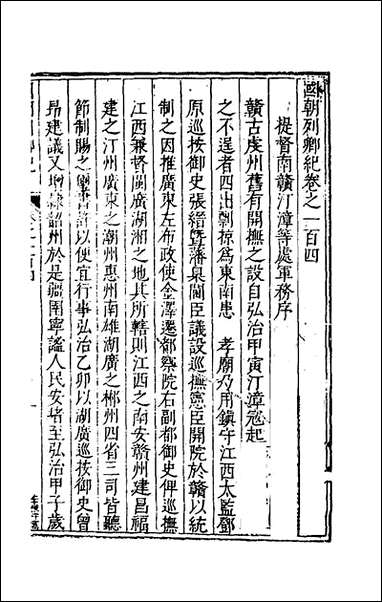 國朝列卿紀卷之一百四
提督南贛汀漳等處軍務序
贛古虔州舊有開撫之設自弘治甲寅汀漳冦起
之不逞者四出剽掠爲東南患 孝廟乃用鎮守江西太監鄧
原巡按御史張縉暨藩臬閫臣議設巡撫憲臣開院於贛以統
制之因推廣東左布政使金澤遷都察院右副都御史俾巡撫
江西兼督閩廣湖湘之地其所轄則江西之南安贛州建昌福
建之汀州廣東之潮州惠州南雄湖廣之郴州四省三司皆聽
節制賜之璽書許以便宜行事弘治乙卯以湖廣巡按御史曾
昂建議又增隸韶州於是疆圉寧謐人民安堵至弘治甲子歲